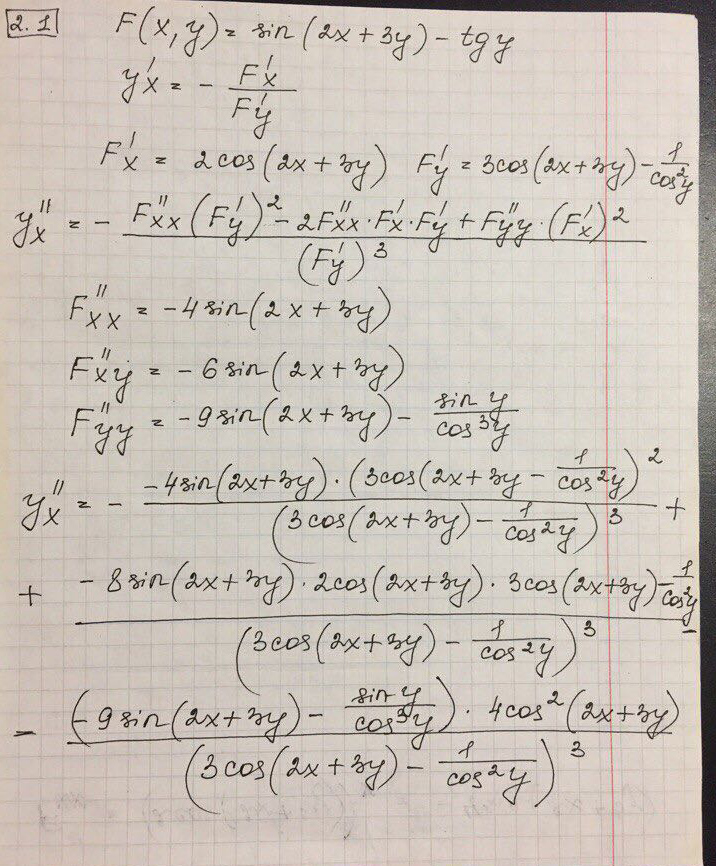 2.1 F(x, y) = sin(2x + 3y) - tg y
y'x = - F'x / F'y
F'x = 2cos(2x + 3y) F'y = 3cos(2x + 3y) - 1/cos²y
y''x = - (F''xx (F'y)² - 2F''xx · F'x · F'y + F''yy · (F'x)²) / (F'y)³
F''xx = -4sin(2x + 3y)
F''xy = -6sin(2x + 3y)
F''yy = -9sin(2x + 3y) - sin y/cos³y
y''x = - (-4sin(2x+3y) · (3cos(2x+3y - 1/cos²y)²) / (3cos(2x+3y) - 1/cos²y)³ +
+ (-8sin(2x+3y) · 2cos(2x+3y) · 3cos(2x+3y) - 1/cos²y) / (3cos(2x+3y) - 1/cos²y)³ -
- ((-9sin(2x+3y) - sin y/cos³y) · 4cos²(2x+3y)) / (3cos(2x+3y) - 1/cos²y)³